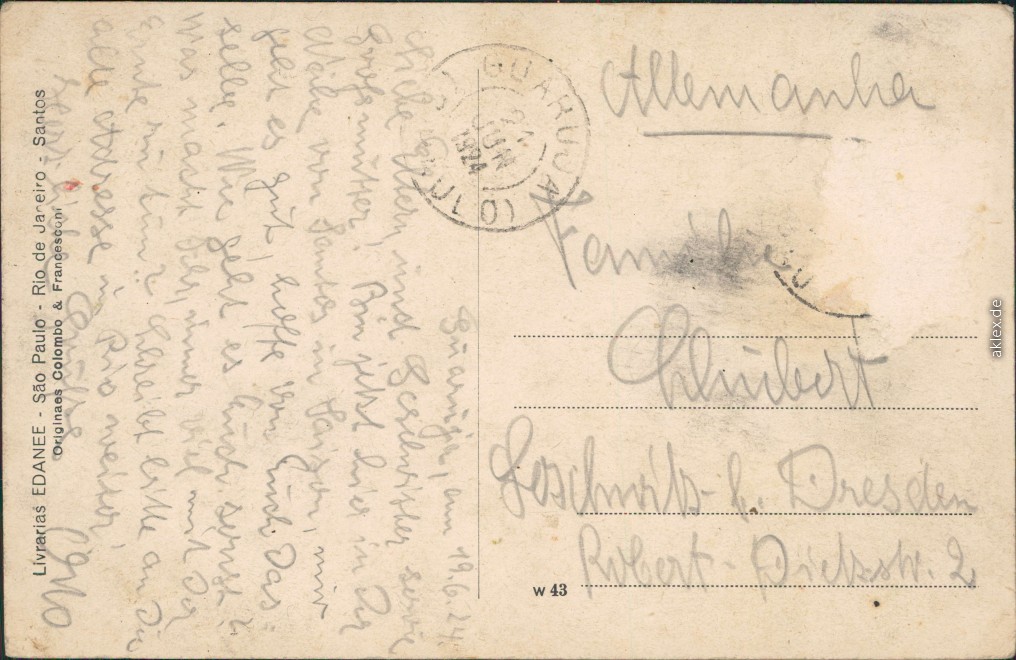 Livrarias EDANEE - São Paulo - Rio de Janeiro - Santos
Originaes Colombo & Francesconi
Guaruja, am 19.6.24.
Liebe Eltern, und Geschwister sowie
Großmutter! Bin jetzt hier in der
Nähe von Santos in
geht es gut, hoffe von Euch das
selbe. Wie geht es Euch sonst?
Was macht immer viel mit der
Ernte zu tun? Schreibt bitte an die
alte Adresse in Rio weiter.
Otto
GUARUJÁ
JUN
1924
Allemanha
Familie
Schubert
Loschwitz b. Dresden
Robert-Dietzstr. 2
W 43
aklex.de